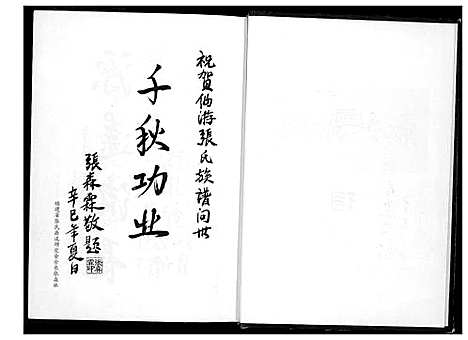 祝贺仙游張氏族譜问世
千秋功业
張森霖敬題
辛巳年夏日